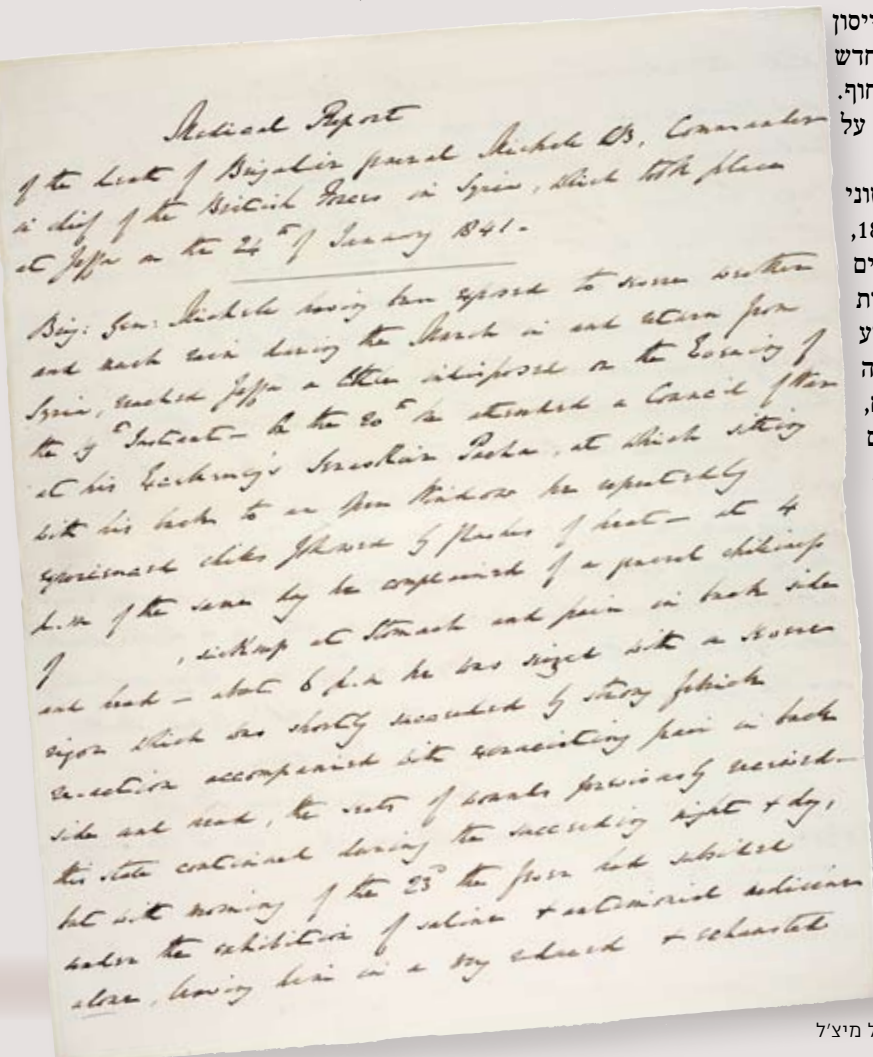 Medical Report
of the death of Brigadier General Michell CB, Commander
in chief of the British Forces in Syria, which took place
at Jaffa on the 24th of January 1841.
Brig: Gen: Michell having been exposed to severe weather
and much rain during the March in and return from
Syria, reached Jaffa a little indisposed on the Evening of
the Instant - On the 20th he attended a Council of War
at his Excellency's Seraskier Pacha, at which sitting
with his back to an open Window he repeatedly
experienced chills followed by flushes of heat - at 4
p.m of the same day he complained of a general chilliness
of , sickness at Stomach and pain in back side
and head - about 6 p.m he was seized with a severe
rigor which was shortly succeeded by strong febrile
re-action accompanied with excruciating pain in back
side and head, the seats of wounds previously received -
this state continued during the succeeding night & day,
but with morning of the 23d the fever had subsided
under the exhibition of saline & antimonial medicines
alone, leaving him in a very reduced & exhausted
ייסון
חדש
חוף.
על
שוני
18,
ים
ית
ע
ה
ם
ל מיצ'ל